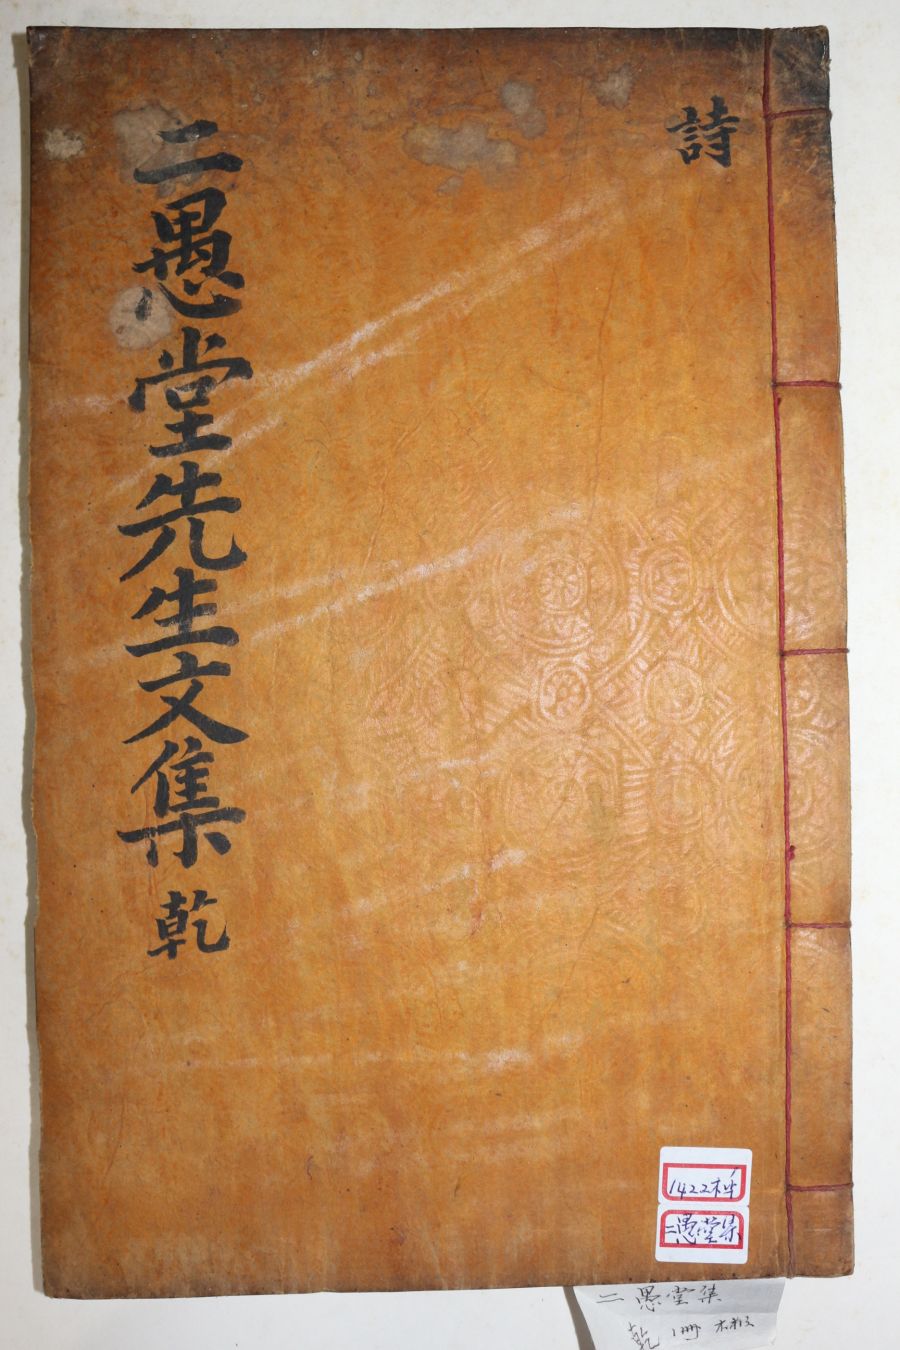 詩
二愚堂先生文集 乾
1422
二愚堂集
二愚堂集
乾 1冊 木板